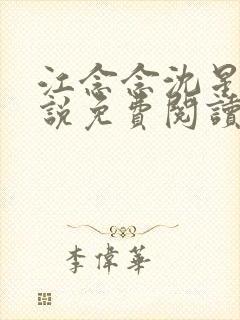 江念念沈星
說免費閱讀
李偉華